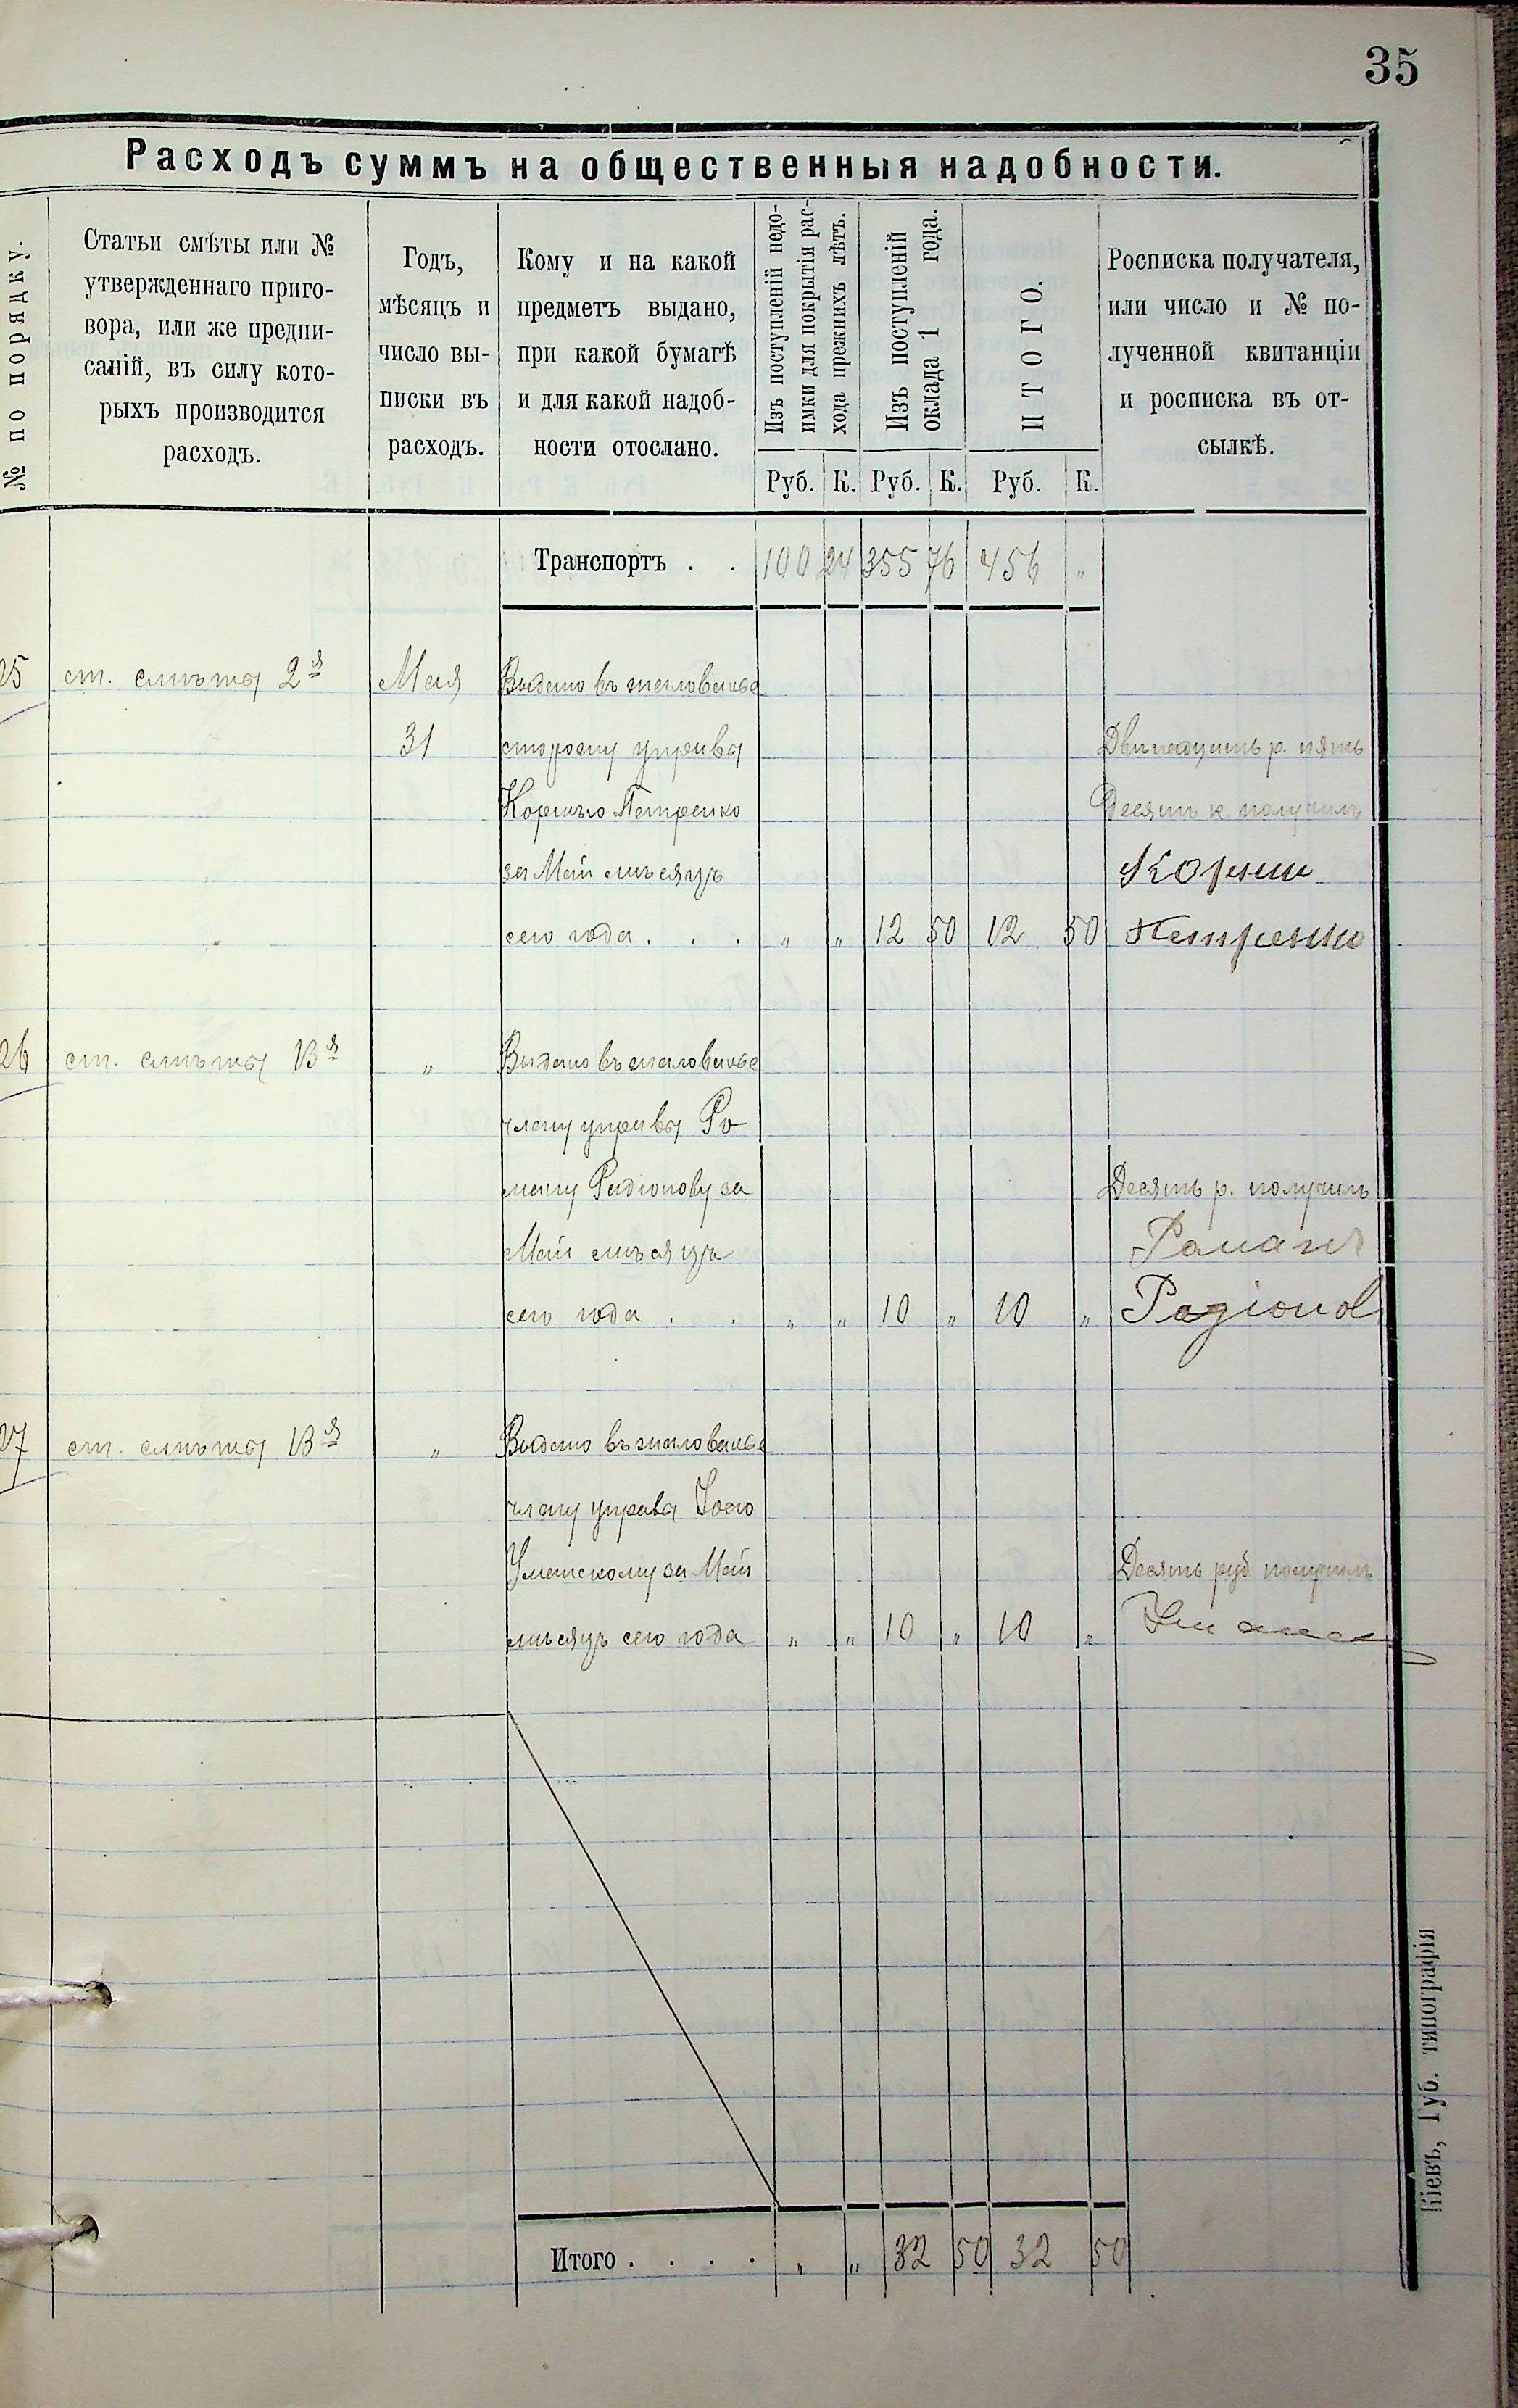 35
Расходъ суммъ на общественныя надобности.
№ по порядку.
Статьи смѣты или №
утвержденнаго приго-
вора, или же предпи-
саній, въ силу кото-
рыхъ производится
расходъ.
Годъ,
мѣсяцъ и
число вы-
писки въ
расходъ.
Кому и на какой
предметъ выдано,
при какой бумагѣ
и для какой надоб-
ности отослано.
Изъ поступленій недо-
имки для покрытія рас-
хода прежнихъ лѣтъ.
Изъ поступленій
оклада 1 года.
ИТОГО.
Росписка получателя,
или число и № по-
лученной квитанціи
и росписка въ от-
сылкѣ.
Руб. К. Руб. К. Руб. К.
Транспортъ . . 100 24 355 76 456 "
25 ст. смѣты 2я Мая Выдано въ жалованье
31 сторожу управы Двѣнадцать р. пять
Корнѣю Петренко Десять к. получилъ
за Май мѣсяцъ Корни
сего года . . . " " 12 50 12 50 Петренко
26 ст. смѣты 13я " Выдано въ жалованье
члену управы Ро
ману Радіонову за Десять р. получилъ
Май мѣсяцъ Раманъ
сего года . . " " 10 " 10 " Радіонов
27 ст. смѣты 13я " Выдано въ жалованье
члену управы
Уманскому за Май Десять руб получилъ
мѣсяцъ сего года " " 10 " 10 "
Итого . . . . " " 32 50 32 50
Кіевъ, Губ. типографія